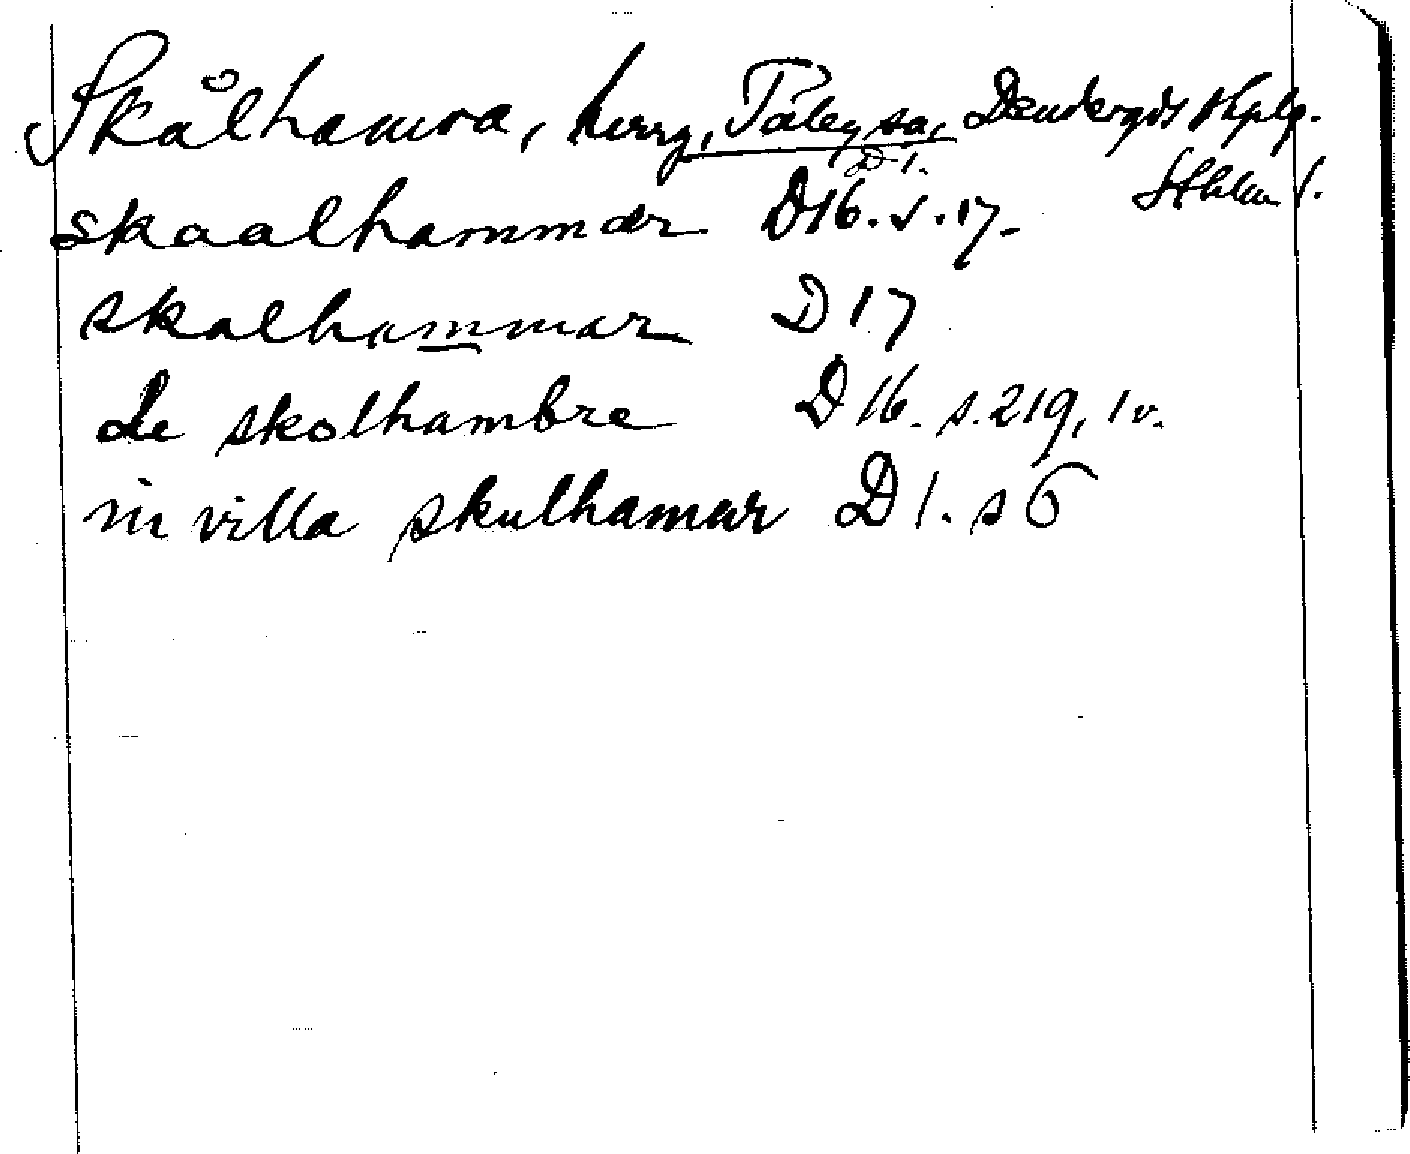 Skålhamra, herrg, Täby sn, Danderyds skplg.
D 1. Sthlm l.
skaalhammar D16. s. 17.
skalhammar D 17
de skolhambre D 16. s. 219, 1 v.
in villa skulhamar D 1. s 6